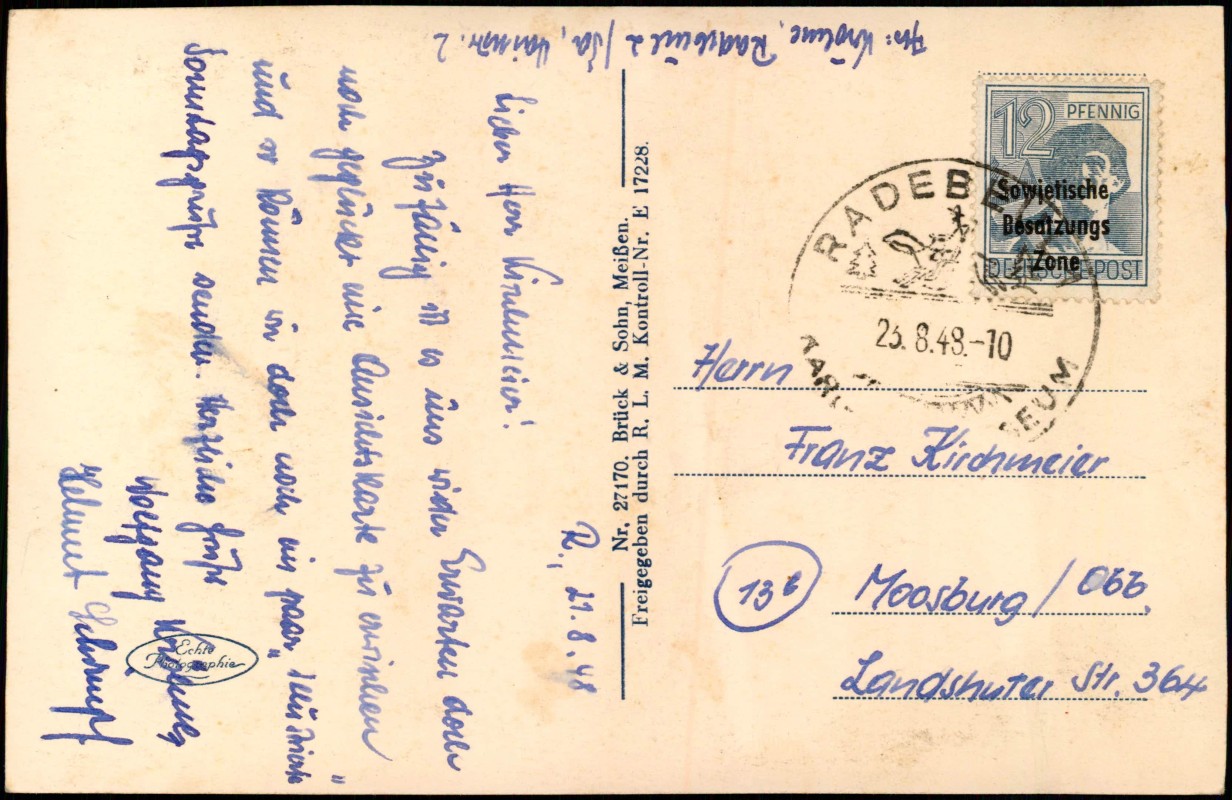 Radebeul 2
R., 21.8.48
Lieber Herr Kirchmeier!
Zufällig ist es uns wider Erwarten doch
noch geglückt eine Ansichtskarte zu erwischen
und so können wir doch noch ein paar
Sonntagsgrüße senden. Herzliche Grüße
Wolfgang
Helmut
Echte
Photographie
Nr. 27170. Brück & Sohn, Meißen.
Freigegeben durch R. L. M. Kontroll-Nr. E 17228.
12 PFENNIG
Sowjetische
Besatzungs
Zone
DEUTSCHE POST
RADEBEUL
23.8.48.-10
Herrn
Franz Kirchmeier
13b
Moosburg/Obb.
Landshuter Str. 364